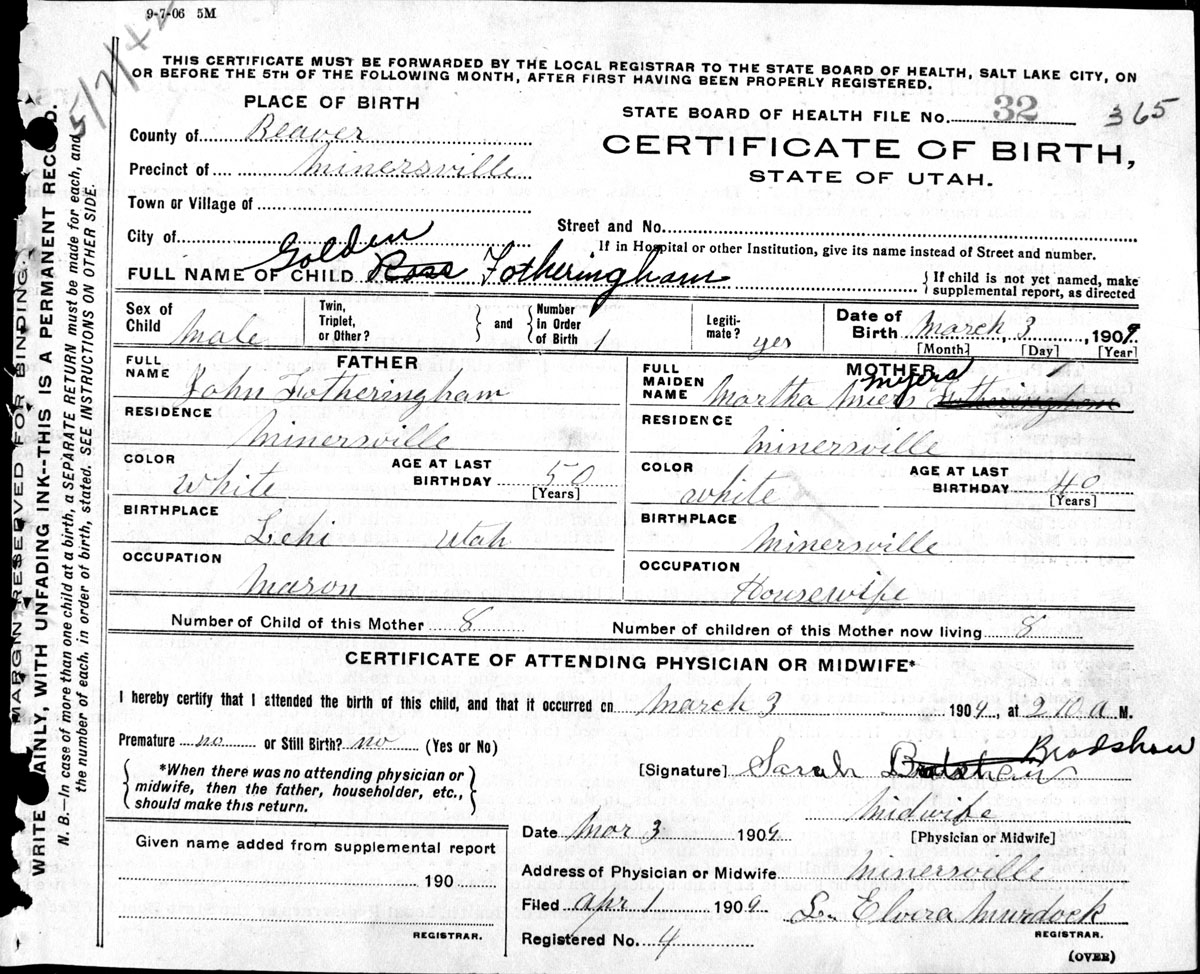 9-7-06 5M
5/7/42
THIS CERTIFICATE MUST BE FORWARDED BY THE LOCAL REGISTRAR TO THE STATE BOARD OF HEALTH, SALT LAKE CITY, ON
OR BEFORE THE 5TH OF THE FOLLOWING MONTH, AFTER FIRST HAVING BEEN PROPERLY REGISTERED.
PLACE OF BIRTH
STATE BOARD OF HEALTH FILE No. 32 365
County of Beaver
CERTIFICATE OF BIRTH,
Precinct of Minersville
STATE OF UTAH.
Town or Village of
Street and No.
City of
If in Hospital or other Institution, give its name instead of Street and number.
FULL NAME OF CHILD Golden Ross Fotheringham
{If child is not yet named, make
supplemental report, as directed
Sex of Child Male
Twin, Triplet, or Other? { } and {Number In Order of Birth 1
Legiti-mate? yes
Date of Birth March 3, 1909
[Month] [Day] [Year]
FATHER
FULL NAME John Fotheringham
RESIDENCE
Minersville
COLOR White
AGE AT LAST BIRTHDAY 50
[Years]
BIRTHPLACE
Lehi Utah
OCCUPATION
Mason
MOTHER
FULL MAIDEN NAME Martha Miers Myers Fotheringham
RESIDENCE
Minersville
COLOR white
AGE AT LAST BIRTHDAY 40
[Years]
BIRTHPLACE
Minersville
OCCUPATION
Housewife
Number of Child of this Mother 8
Number of children of this Mother now living 8
CERTIFICATE OF ATTENDING PHYSICIAN OR MIDWIFE*
I hereby certify that I attended the birth of this child, and that it occurred on March 3 1909, at 2 10 a M.
Premature no or Still Birth? no (Yes or No)
{*When there was no attending physician or
midwife, then the father, householder, etc.,
should make this return.}
[Signature] Sarah Bradshaw Bradshaw
Midwife
[Physician or Midwife]
Date Mar 3 1909
Given name added from supplemental report
190
REGISTRAR.
Address of Physician or Midwife Minersville
Filed Apr 1 1909 L. Elvira Murdock
REGISTRAR.
Registered No. 4
(OVER)
MARGIN RESERVED FOR BINDING.
WRITE AINLY, WITH UNFADING INK--THIS IS A PERMANENT RECORD.
N. B.—In case of more than one child at a birth, a SEPARATE RETURN must be made for each, and
the number of each, in order of birth, stated. SEE INSTRUCTIONS ON OTHER SIDE.